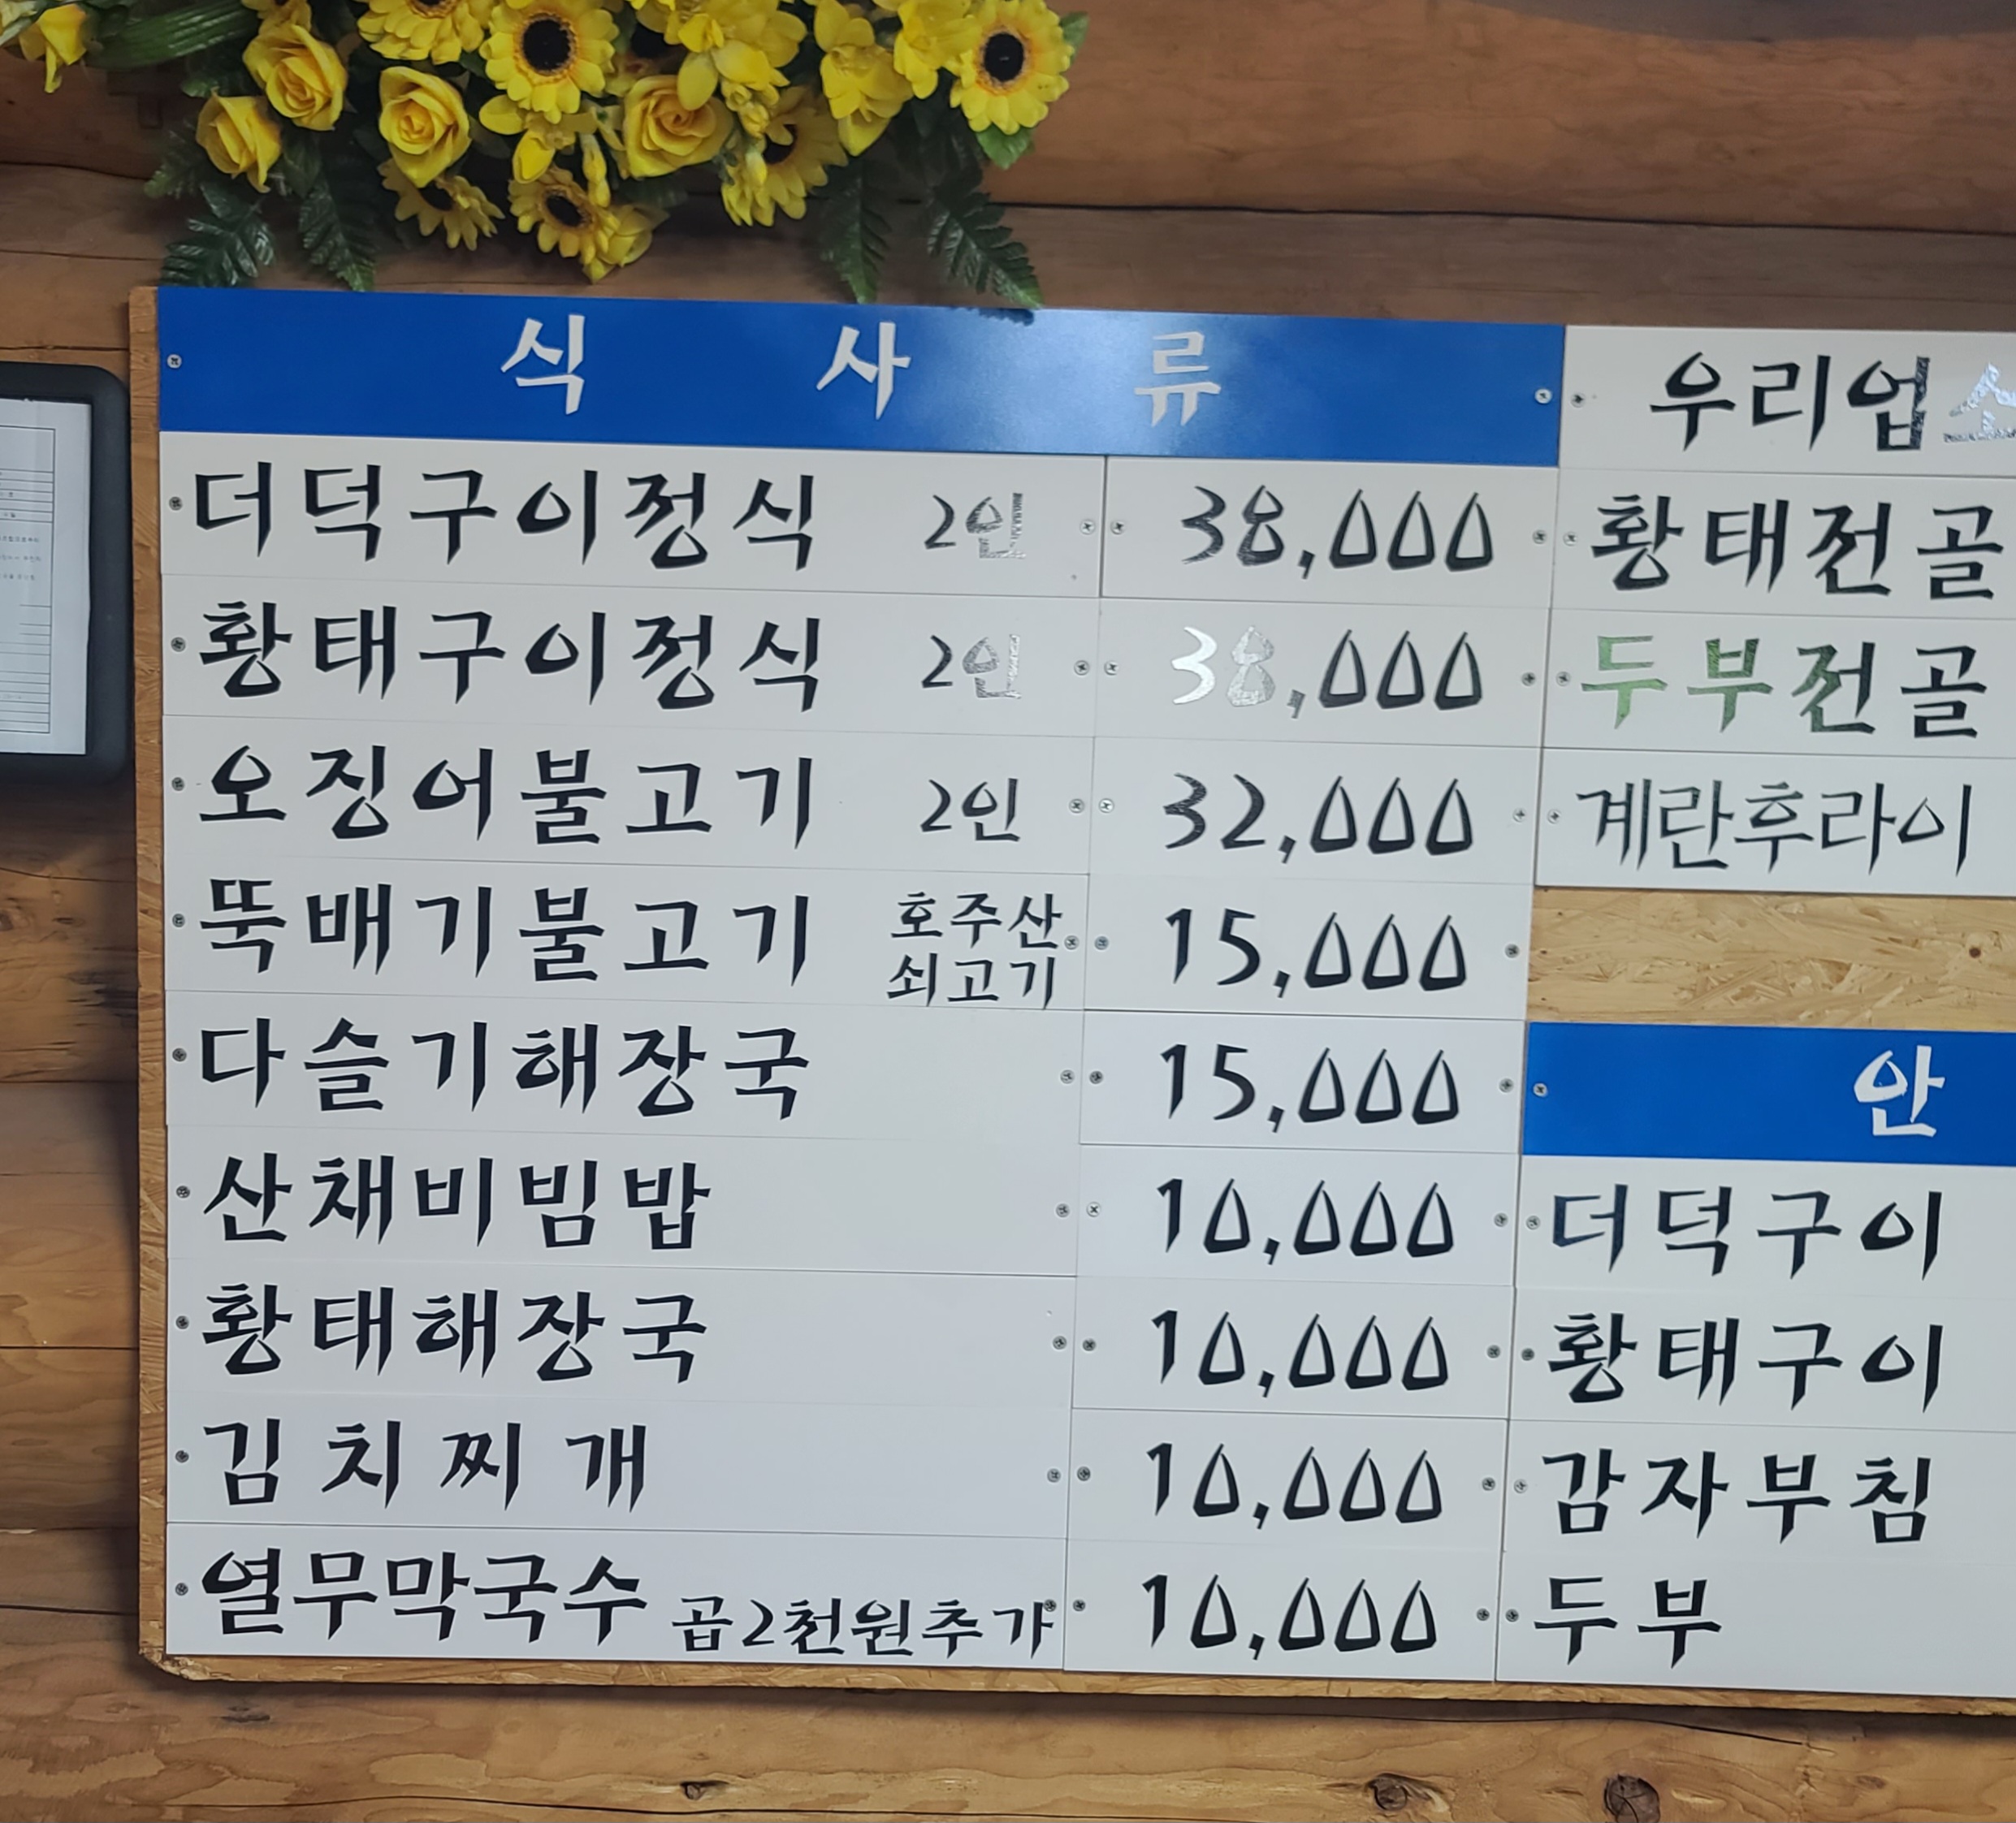 식 사 류
더덕구이정식 2인 38,000
황태구이정식 2인 38,000
오징어불고기 2인 32,000
뚝배기불고기 호주산 쇠고기 15,000
다슬기해장국 15,000
산채비빔밥 10,000
황태해장국 10,000
김치찌개 10,000
열무막국수 곱2천원추가 10,000
우리업소
황태전골
두부전골
계란후라이
안
더덕구이
황태구이
감자부침
두부